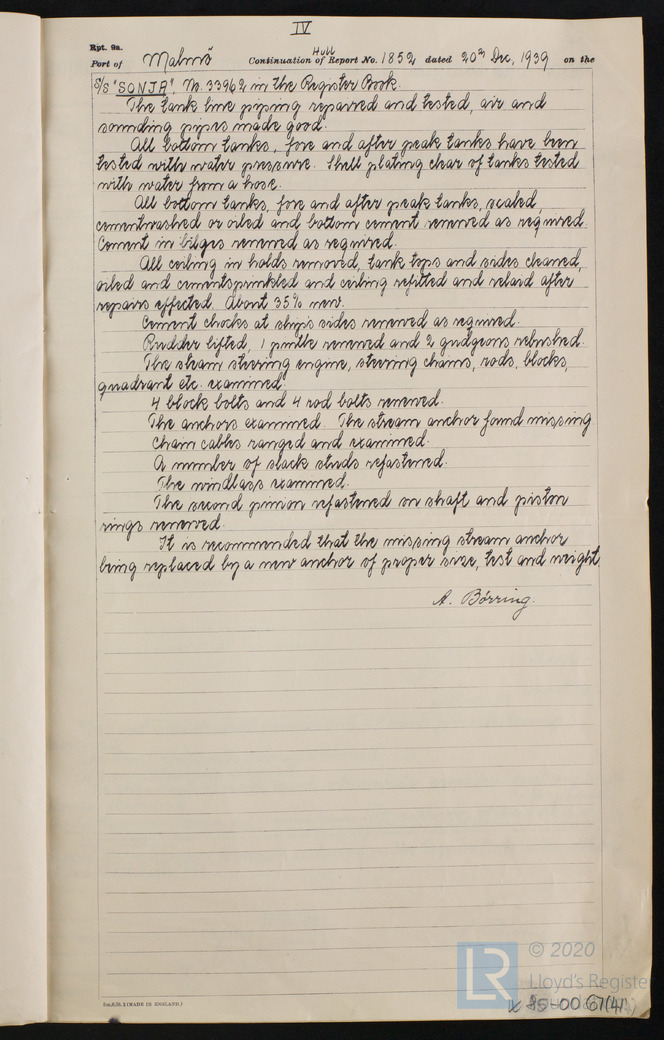 IV
Rpt. 9a.
Port of Malmö Continuation of Hull Report No. 1852 dated 20th Dec, 1939 on the
S/S "SONJA", No. 33962 in the Register Book.
The tank line piping repaired and tested, air and
sounding pipes made good.
All bottom tanks, fore and after peak tanks have been
tested with water pressure. Shell plating clear of tanks tested
with water from a hose.
All bottom tanks, fore and after peak tanks, scaled,
cementwashed or oiled and bottom cement renewed as required.
Cement in bilges renewed as required.
All ceiling in holds removed, tank tops and sides cleaned,
oiled and cementsprinkled and ceiling refitted and relaid after
repairs effected. About 35% new.
Cement chocks at ship's sides renewed as required.
Rudder lifted, 1 pintle renewed and 2 gudgeons rebushed.
The steam steering engine, steering chains, rods, blocks,
quadrant etc. examined.
4 block bolts and 4 rod bolts renewed.
The anchors examined. The stream anchor found missing
Chain cables ranged and examined.
A number of slack studs refastened.
The windlass examined.
The second pinion refastened on shaft and piston
rings renewed.
It is recommended that the missing stream anchor
being replaced by a new anchor of proper size, test and weight
A. Börring.
(MADE IN ENGLAND.)
© 2020
LR
Lloyd's Registe